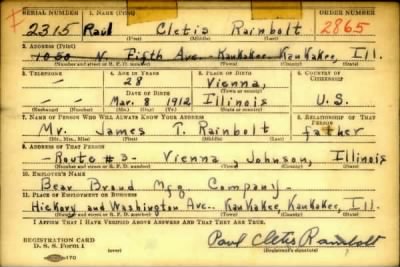 SERIAL NUMBER 1. NAME (Print) ORDER NUMBER
2315 Paul Cletis Rainbolt 2865
(First) (Middle) (Last)
2. ADDRESS (Print)
1030 N. Fifth Ave. Kankakee, Kankakee, Ill.
(Number and street or R. F. D. number) (Town) (County) (State)
3. TELEPHONE 4. AGE IN YEARS 5. PLACE OF BIRTH 6. COUNTRY OF CITIZENSHIP
28 Vienna,
DATE OF BIRTH (Town or county)
Mar. 8 1912 Illinois U.S.
(Exchange) (Number) (Mo.) (Day) (Yr.) (State or country)
7. NAME OF PERSON WHO WILL ALWAYS KNOW YOUR ADDRESS 8. RELATIONSHIP OF THAT PERSON
Mr. James T. Rainbolt father
(Mr., Mrs., Miss) (First) (Middle) (Last)
9. ADDRESS OF THAT PERSON
Route #3 - Vienna, Johnson, Illinois
(Number and street or R. F. D. number) (Town) (County) (State)
10. EMPLOYER'S NAME
Bear Brand Mfg Company.
11. PLACE OF EMPLOYMENT OR BUSINESS
Hickory and Washington Ave. Kankakee, Kankakee, Ill.
(Number and street or R. F. D. number) (Town) (County) (State)
I AFFIRM THAT I HAVE VERIFIED ABOVE ANSWERS AND THAT THEY ARE TRUE.
REGISTRATION CARD
D. S. S. Form 1 Paul Cletis Rainbolt
(Registrant's signature)